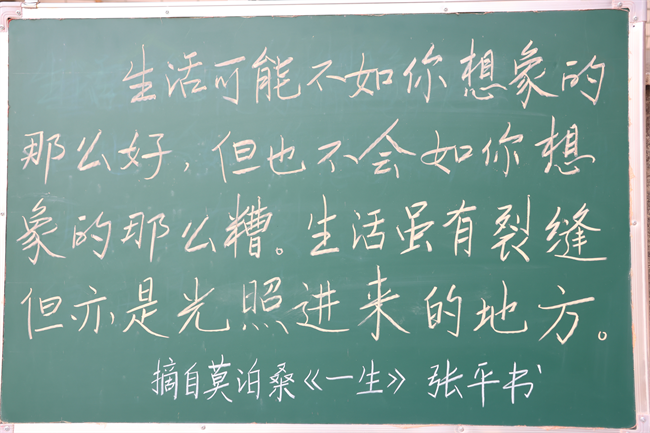 生活可能不如你想象的
那么好，但也不会如你想
象的那么糟。生活虽有裂缝
但亦是光照进来的地方。
摘自莫泊桑《一生》张平书